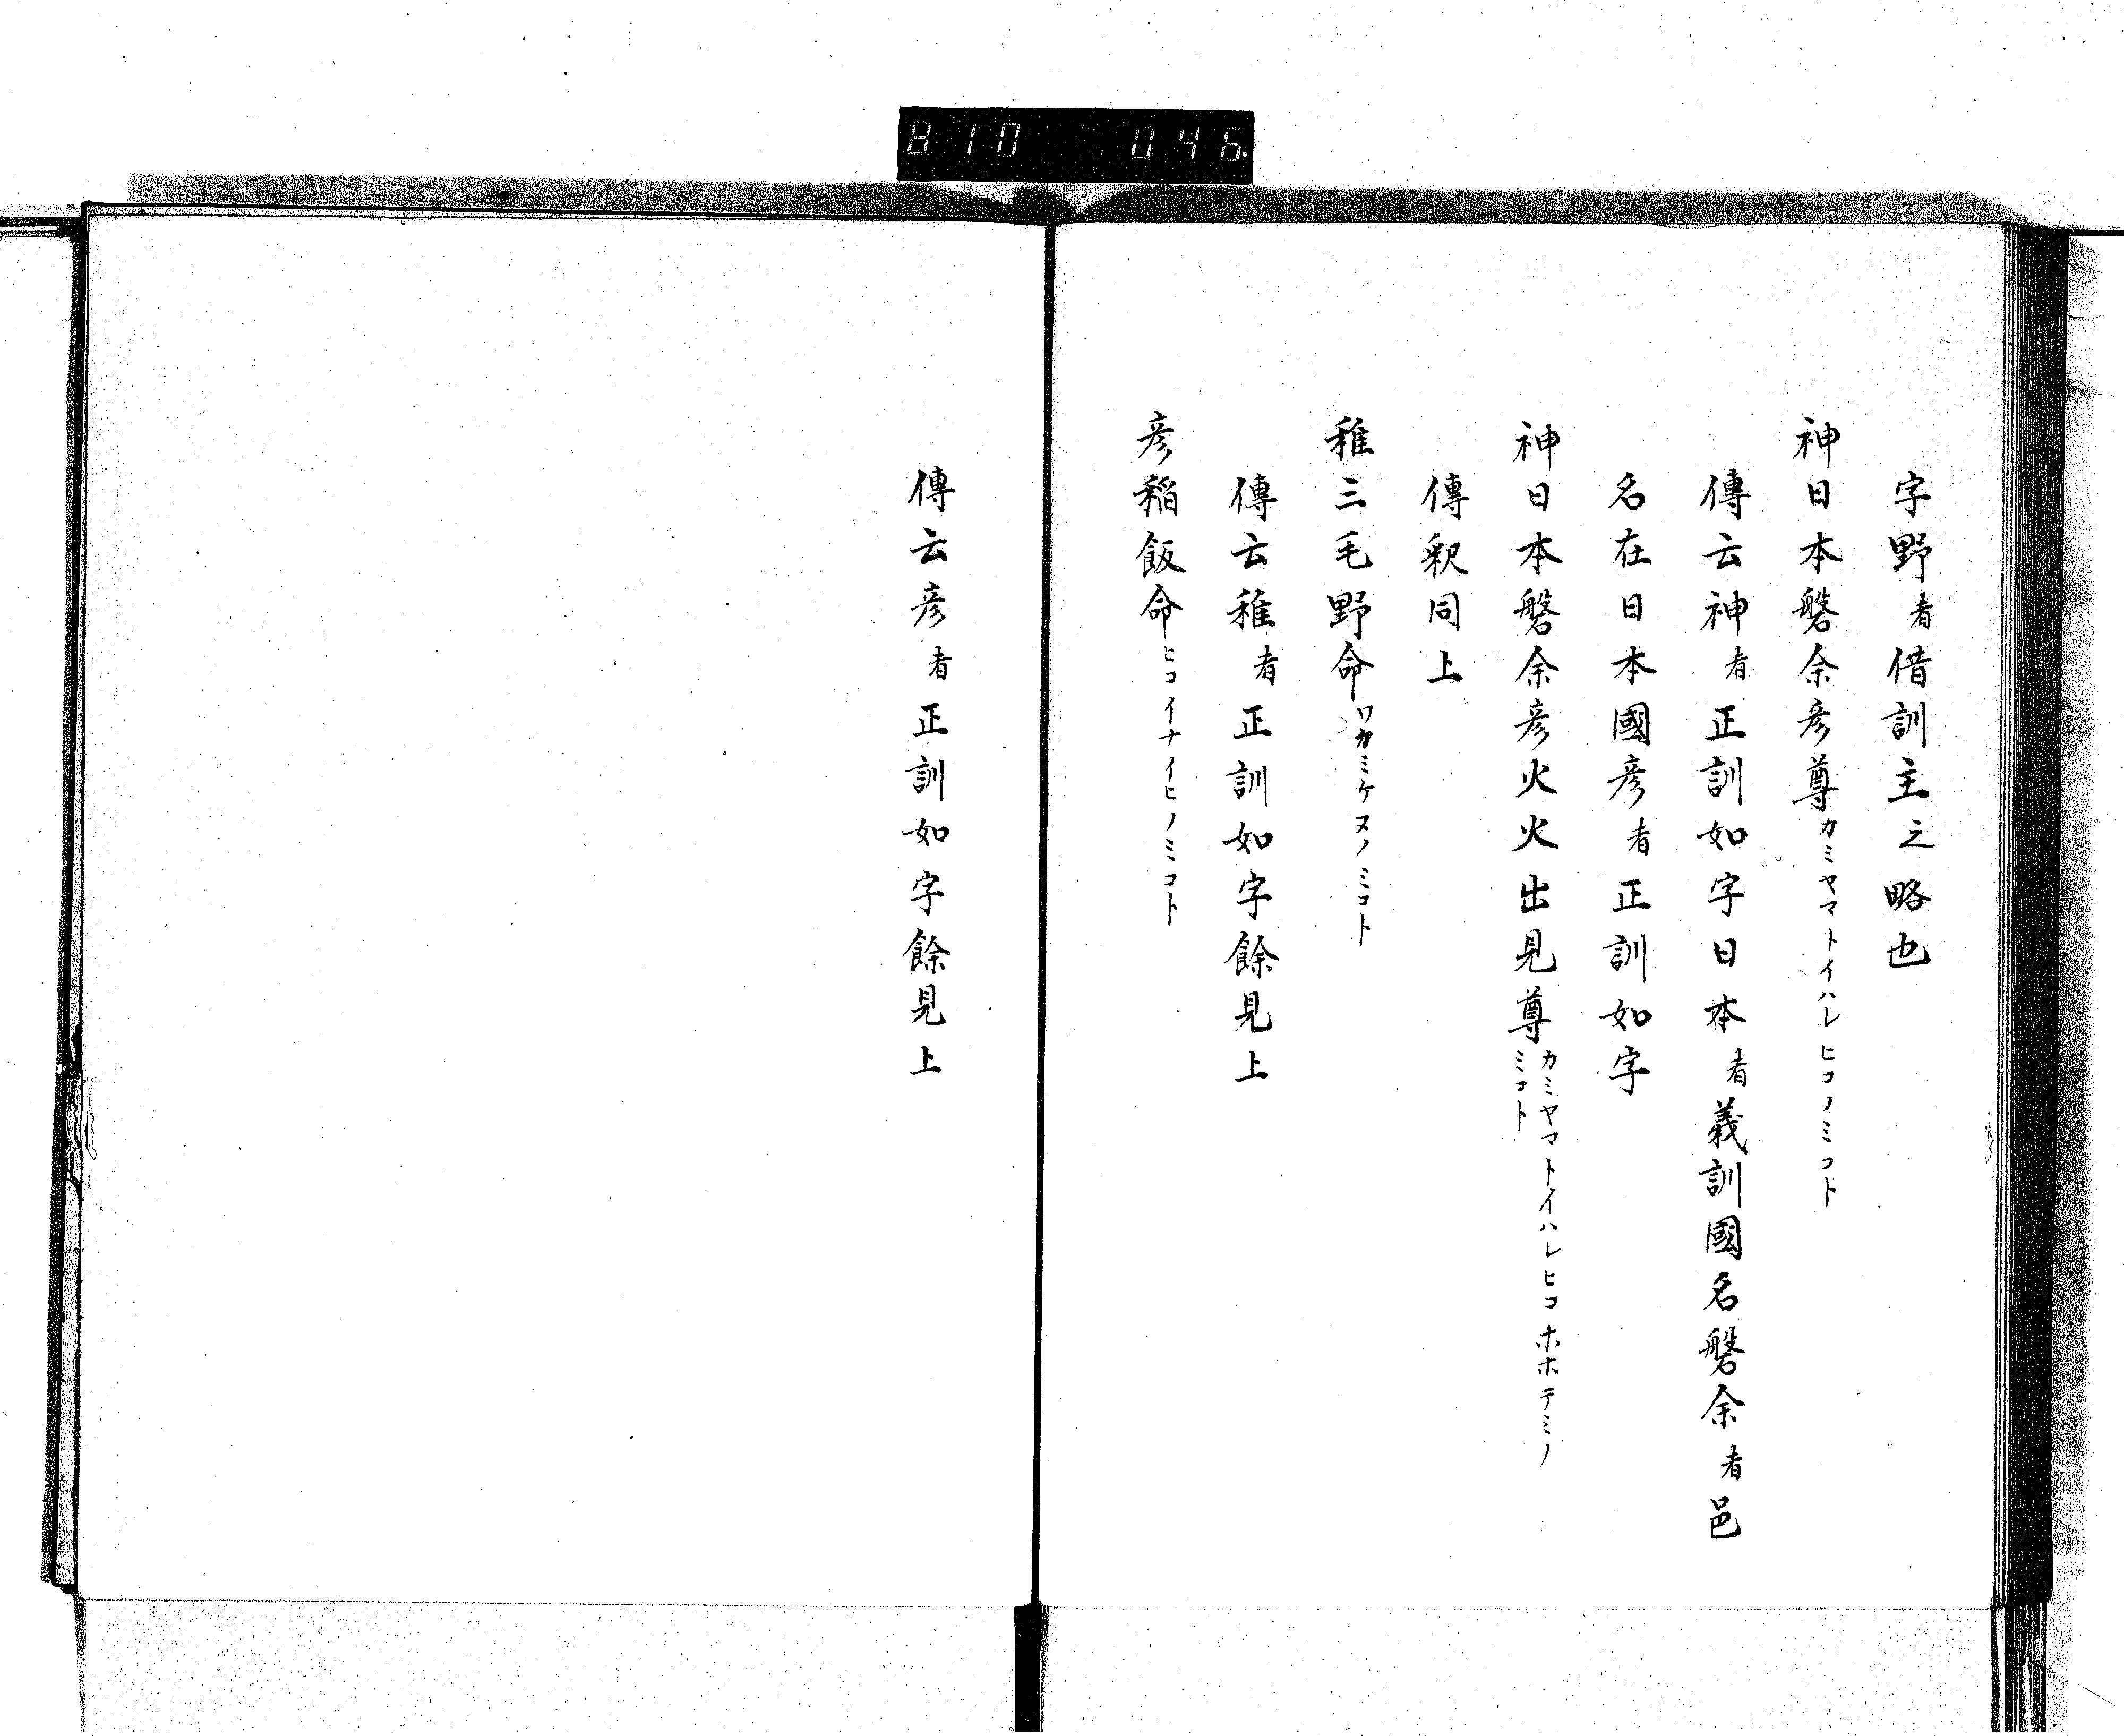 810 046
字野者借訓主之略也
神日本磐余彦尊カミヤマトイハレヒコノミコト
傳云神者正訓如字日本者義訓國名磐余者邑
名在日本國彦者正訓如字
神日本磐余彦火火出見尊カミヤマトイハレヒコホホテミノ
ミコト
傳釈同上
稚三毛野命ワカミケヌノミコト
傳云稚者正訓如字餘見上
彦稲飯命ヒコイナイヒノミコト
傳云彦者正訓如字餘見上